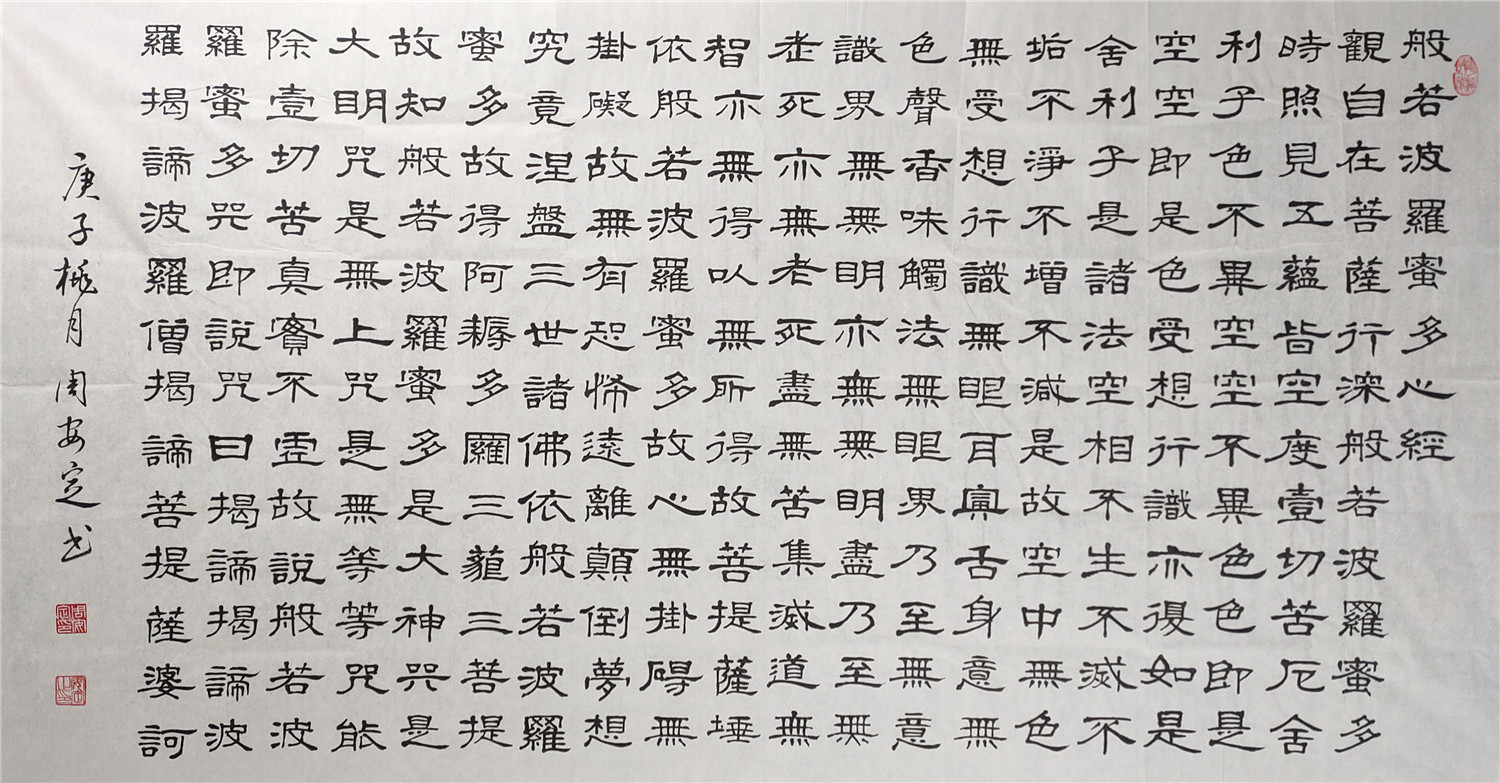 般若波羅蜜多心經
觀自在菩薩行深般若波羅蜜多
時照見五蘊皆空度壹切苦厄舍
利子色不異空空不異色色即是
空空即是色受想行識亦復如是
舍利子是諸法空相不生不滅不
垢不淨不增不減是故空中無色
無受想行識無眼耳鼻舌身意無
色聲香味觸法無眼界乃至無意
識界無無明亦無無明盡乃至無
老死亦無老死盡無苦集滅道無
智亦無得以無所得故菩提薩埵
依般若波羅蜜多故心無掛碍無
掛礙故無有恐怖遠離顛倒夢想
究竟涅盤三世諸佛依般若波羅
蜜多故得阿耨多羅三藐三菩提
故知般若波羅蜜多是大神咒是
大明咒是無上咒是無等等咒能
除壹切苦真實不虛故說般若波
羅蜜多咒即說咒曰揭諦揭諦波
羅揭諦波羅僧揭諦菩提薩婆訶
庚子桃月周安定书
周安定印